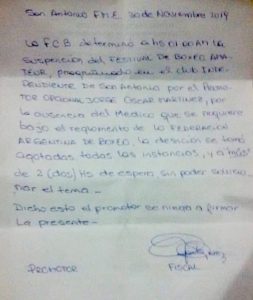 San Antonio F.M.E. 30 de Noviembre 2019
La F.C.B determinó a Hs 01:00 AM LA
Suspención del FESTIVAL DE BOXEO AMA-
TEUR, programado en el club INDE-
PENDIENTE DE San Antonio por el Promo-
TOR OPCIONAL JORGE OSCAR MARTINEZ, por
la ausencia del Medico que se requiere
bajo el reglamento de la FEDERACION
ARGENTINA DE BOXEO, la desición se tomó
agotadas todas las instancias, y a "más"
de 2 (dos) Hs de espera, sin poder solucio-
nar el tema.-
Dicho esto el promotor se niega a firmar
La presente.-
PROMOTOR
FISCAL